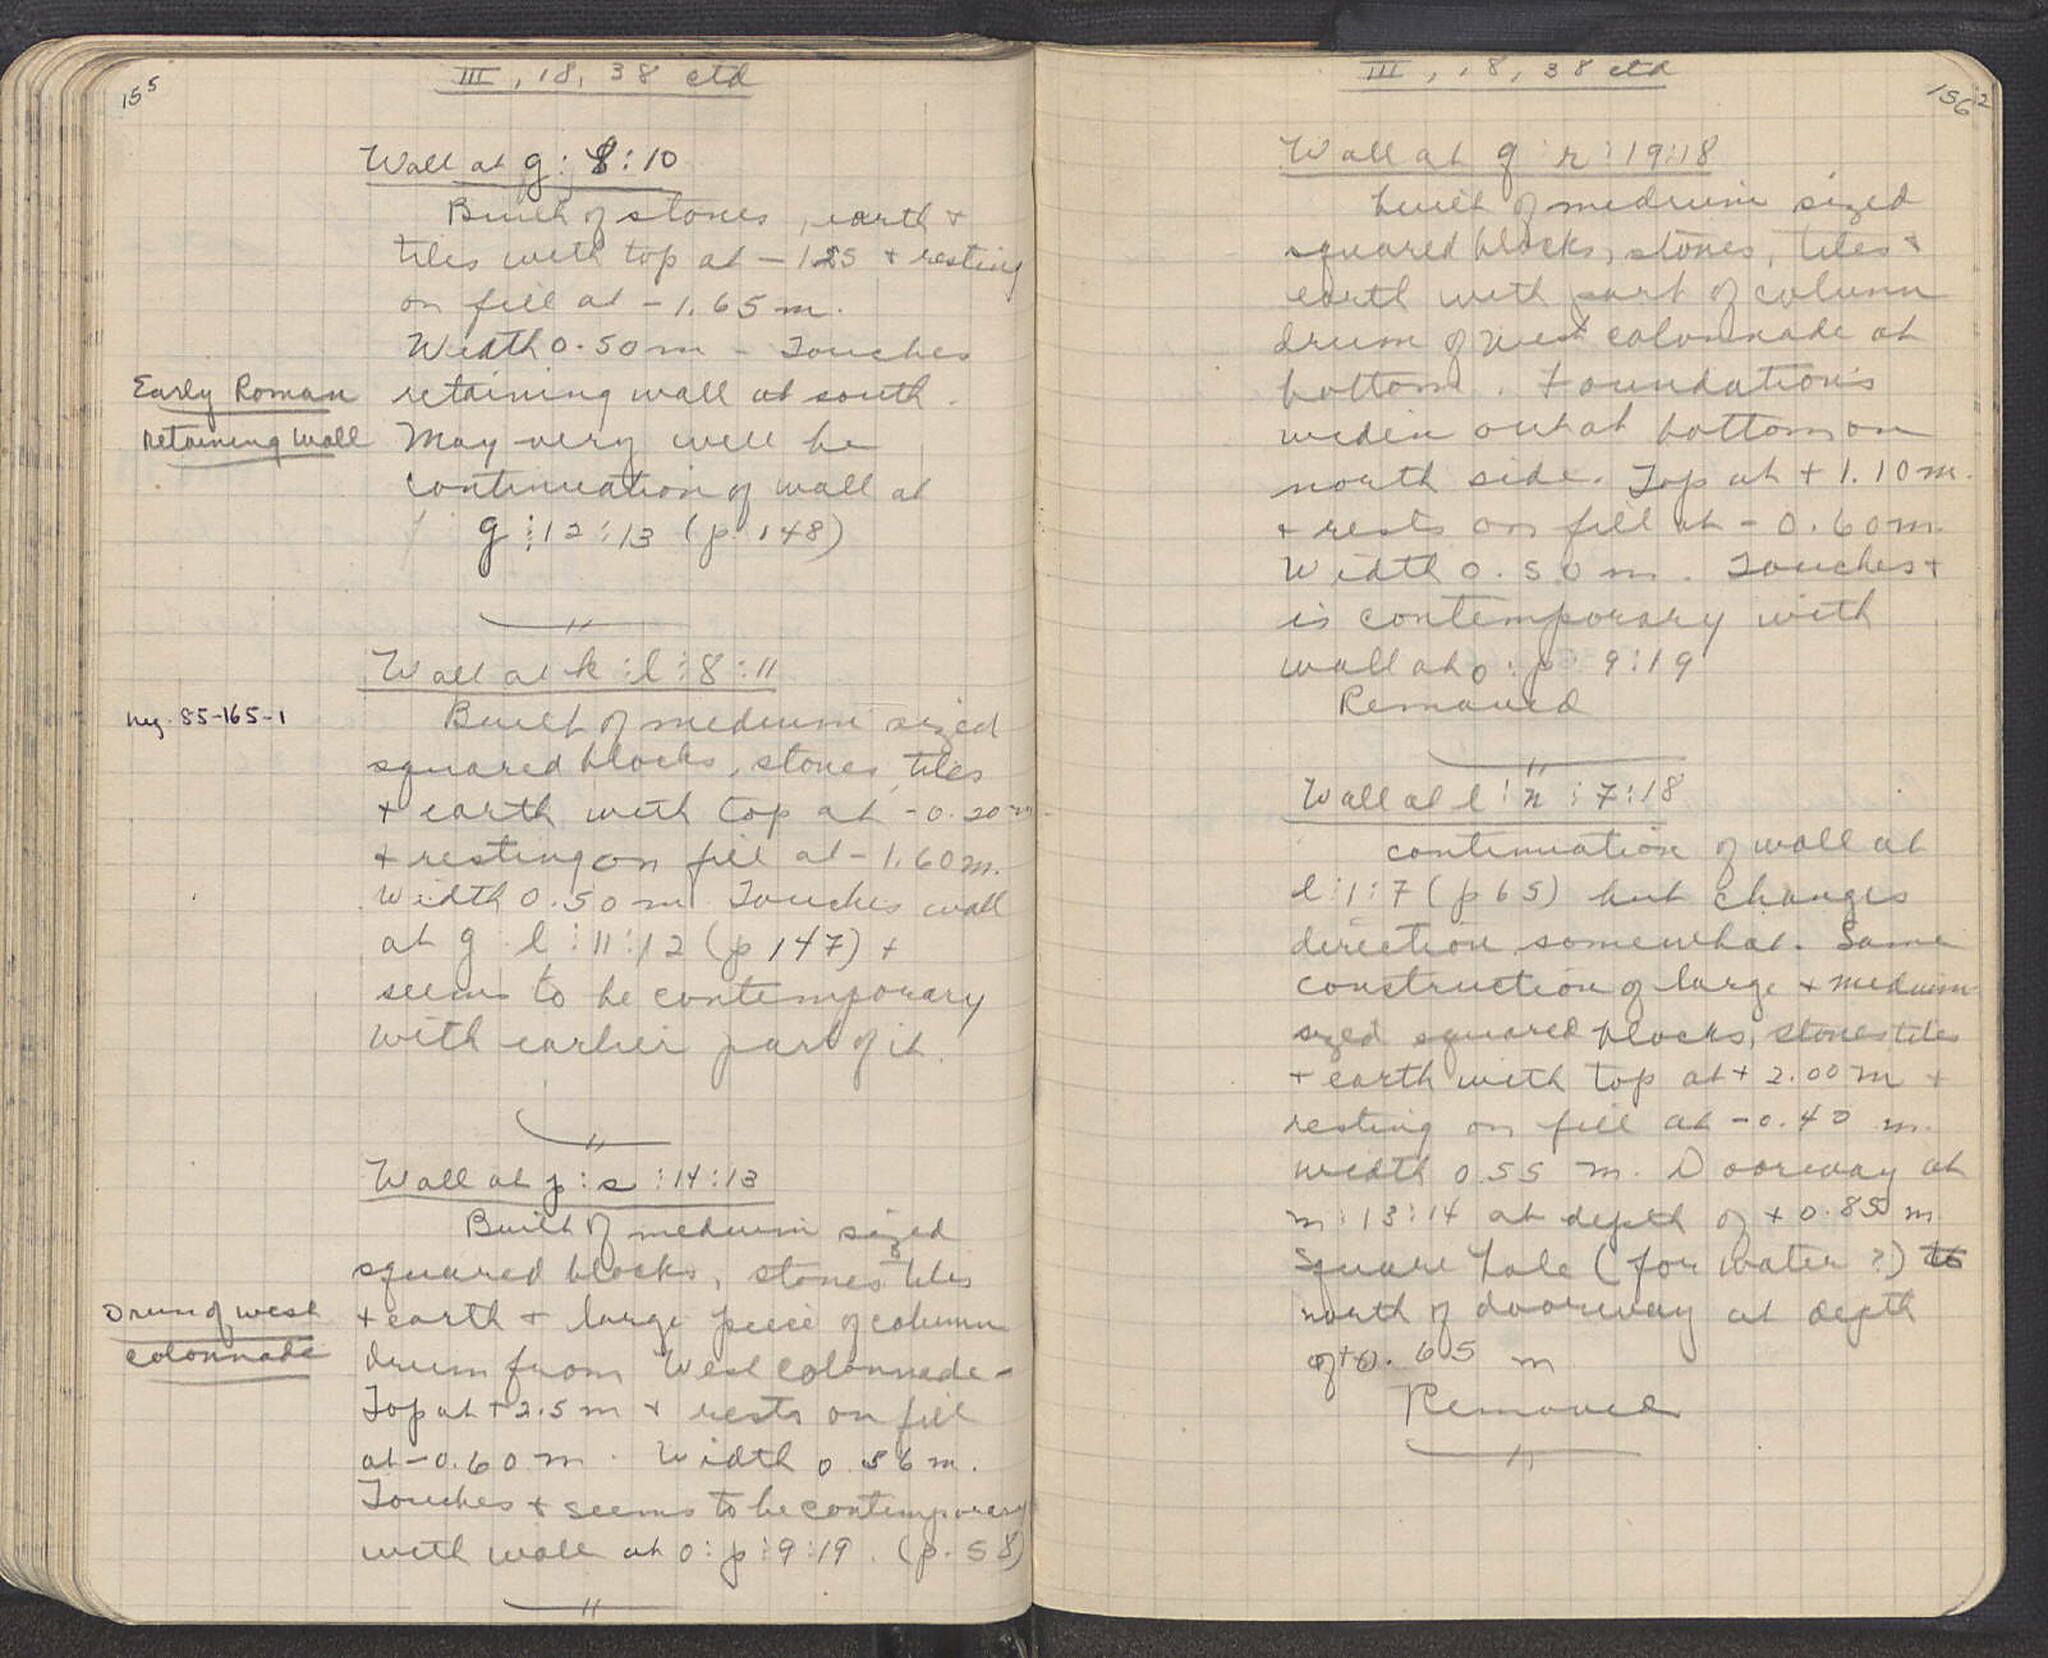 155
III, 18, 38 ctd
Wall at g : 8 : 10
Built of stones, earth +
tiles with top at - 1.25 + resting
on fill at - 1.65 m.
Width 0.50 m - Touches
Early Roman
retaining wall
retaining wall at south.
May very well be
continuation of wall at
g : 12 : 13 (p. 148)
Wall at k : l : 8 : 11
neg. 85-165-1
Built of medium sized
squared blocks, stones, tiles
+ earth with top at - 0.20 m
+ resting on fill at - 1.60 m.
Width 0.50 m Touches wall
at g l : 11 : 12 (p 147) +
seems to be contemporary
with earlier part of it.
Wall at p : s : 14 : 13
Built of medium sized
squared blocks, stones tiles
Drum of west
colonnade
+ earth + large piece of column
drum from West colonnade -
Top at + 2.5 m + rests on fill
at - 0.60 m. Width 0.56 m.
Touches + seems to be contemporary
with wall at o : p : 9 : 19. (p. 58)
156
III, 18, 38 ctd
Wall at q r : 19 : 18
built of medium sized
squared blocks, stones, tiles +
earth with part of column
drum of West colonnade at
bottom. Foundations
widen out at bottom on
north side. Top at + 1.10 m.
+ rests on fill at - 0.60 m.
Width 0.50 m. Touches +
is contemporary with
wall at o : p 9 : 19
Removed
Wall at l : n : 7 : 18
continuation of wall at
l : 1 : 7 (p 65) but changes
direction somewhat. Same
construction of large + medium
sized squared blocks, stones tiles
+ earth with top at + 2.00 m +
resting on fill at - 0.40 m.
width 0.55 m. Doorway at
m : 13 : 14 at depth of + 0.85 m
Square hole (for water ?)
north of doorway at depth
of +0.65 m
Removed